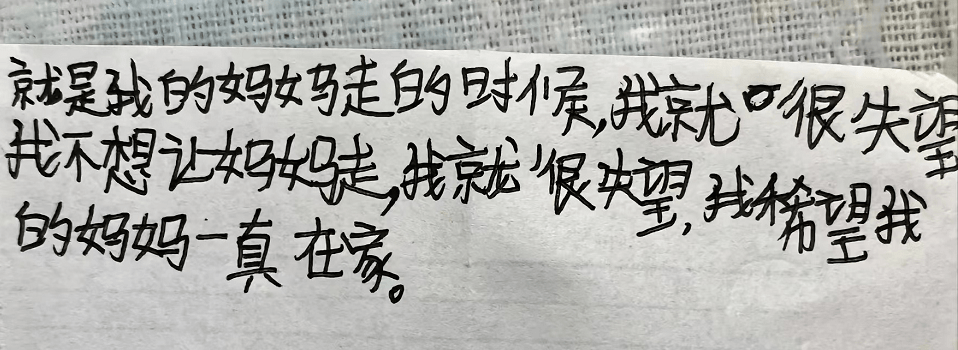 就是我的妈妈走的时候,我就很失望
我不想让妈妈走,我就很失望,我希望我
的妈妈一真在家。